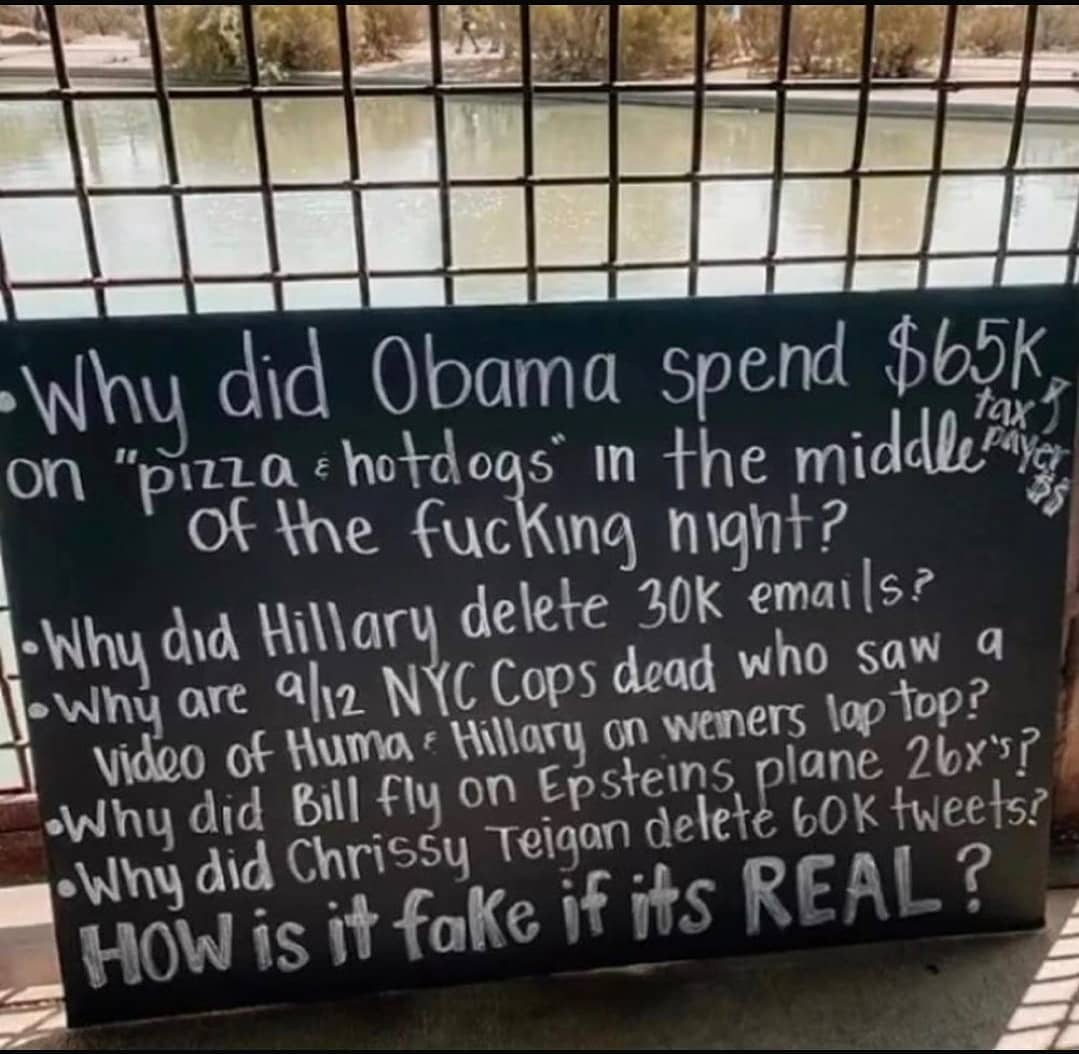 •Why did Obama spend $65K,
tax
payer
$$
on "pizza & hotdogs" in the middle
of the fucking night?
•Why did Hillary delete 30K emails?
•Why are 9/12 NYC Cops dead who saw a
video of Huma & Hillary on weiners lap top?
•Why did Bill fly on Epsteins plane 26x's?
•Why did Chrissy Teigan delete 60K tweets?
HOW is it fake if its REAL?